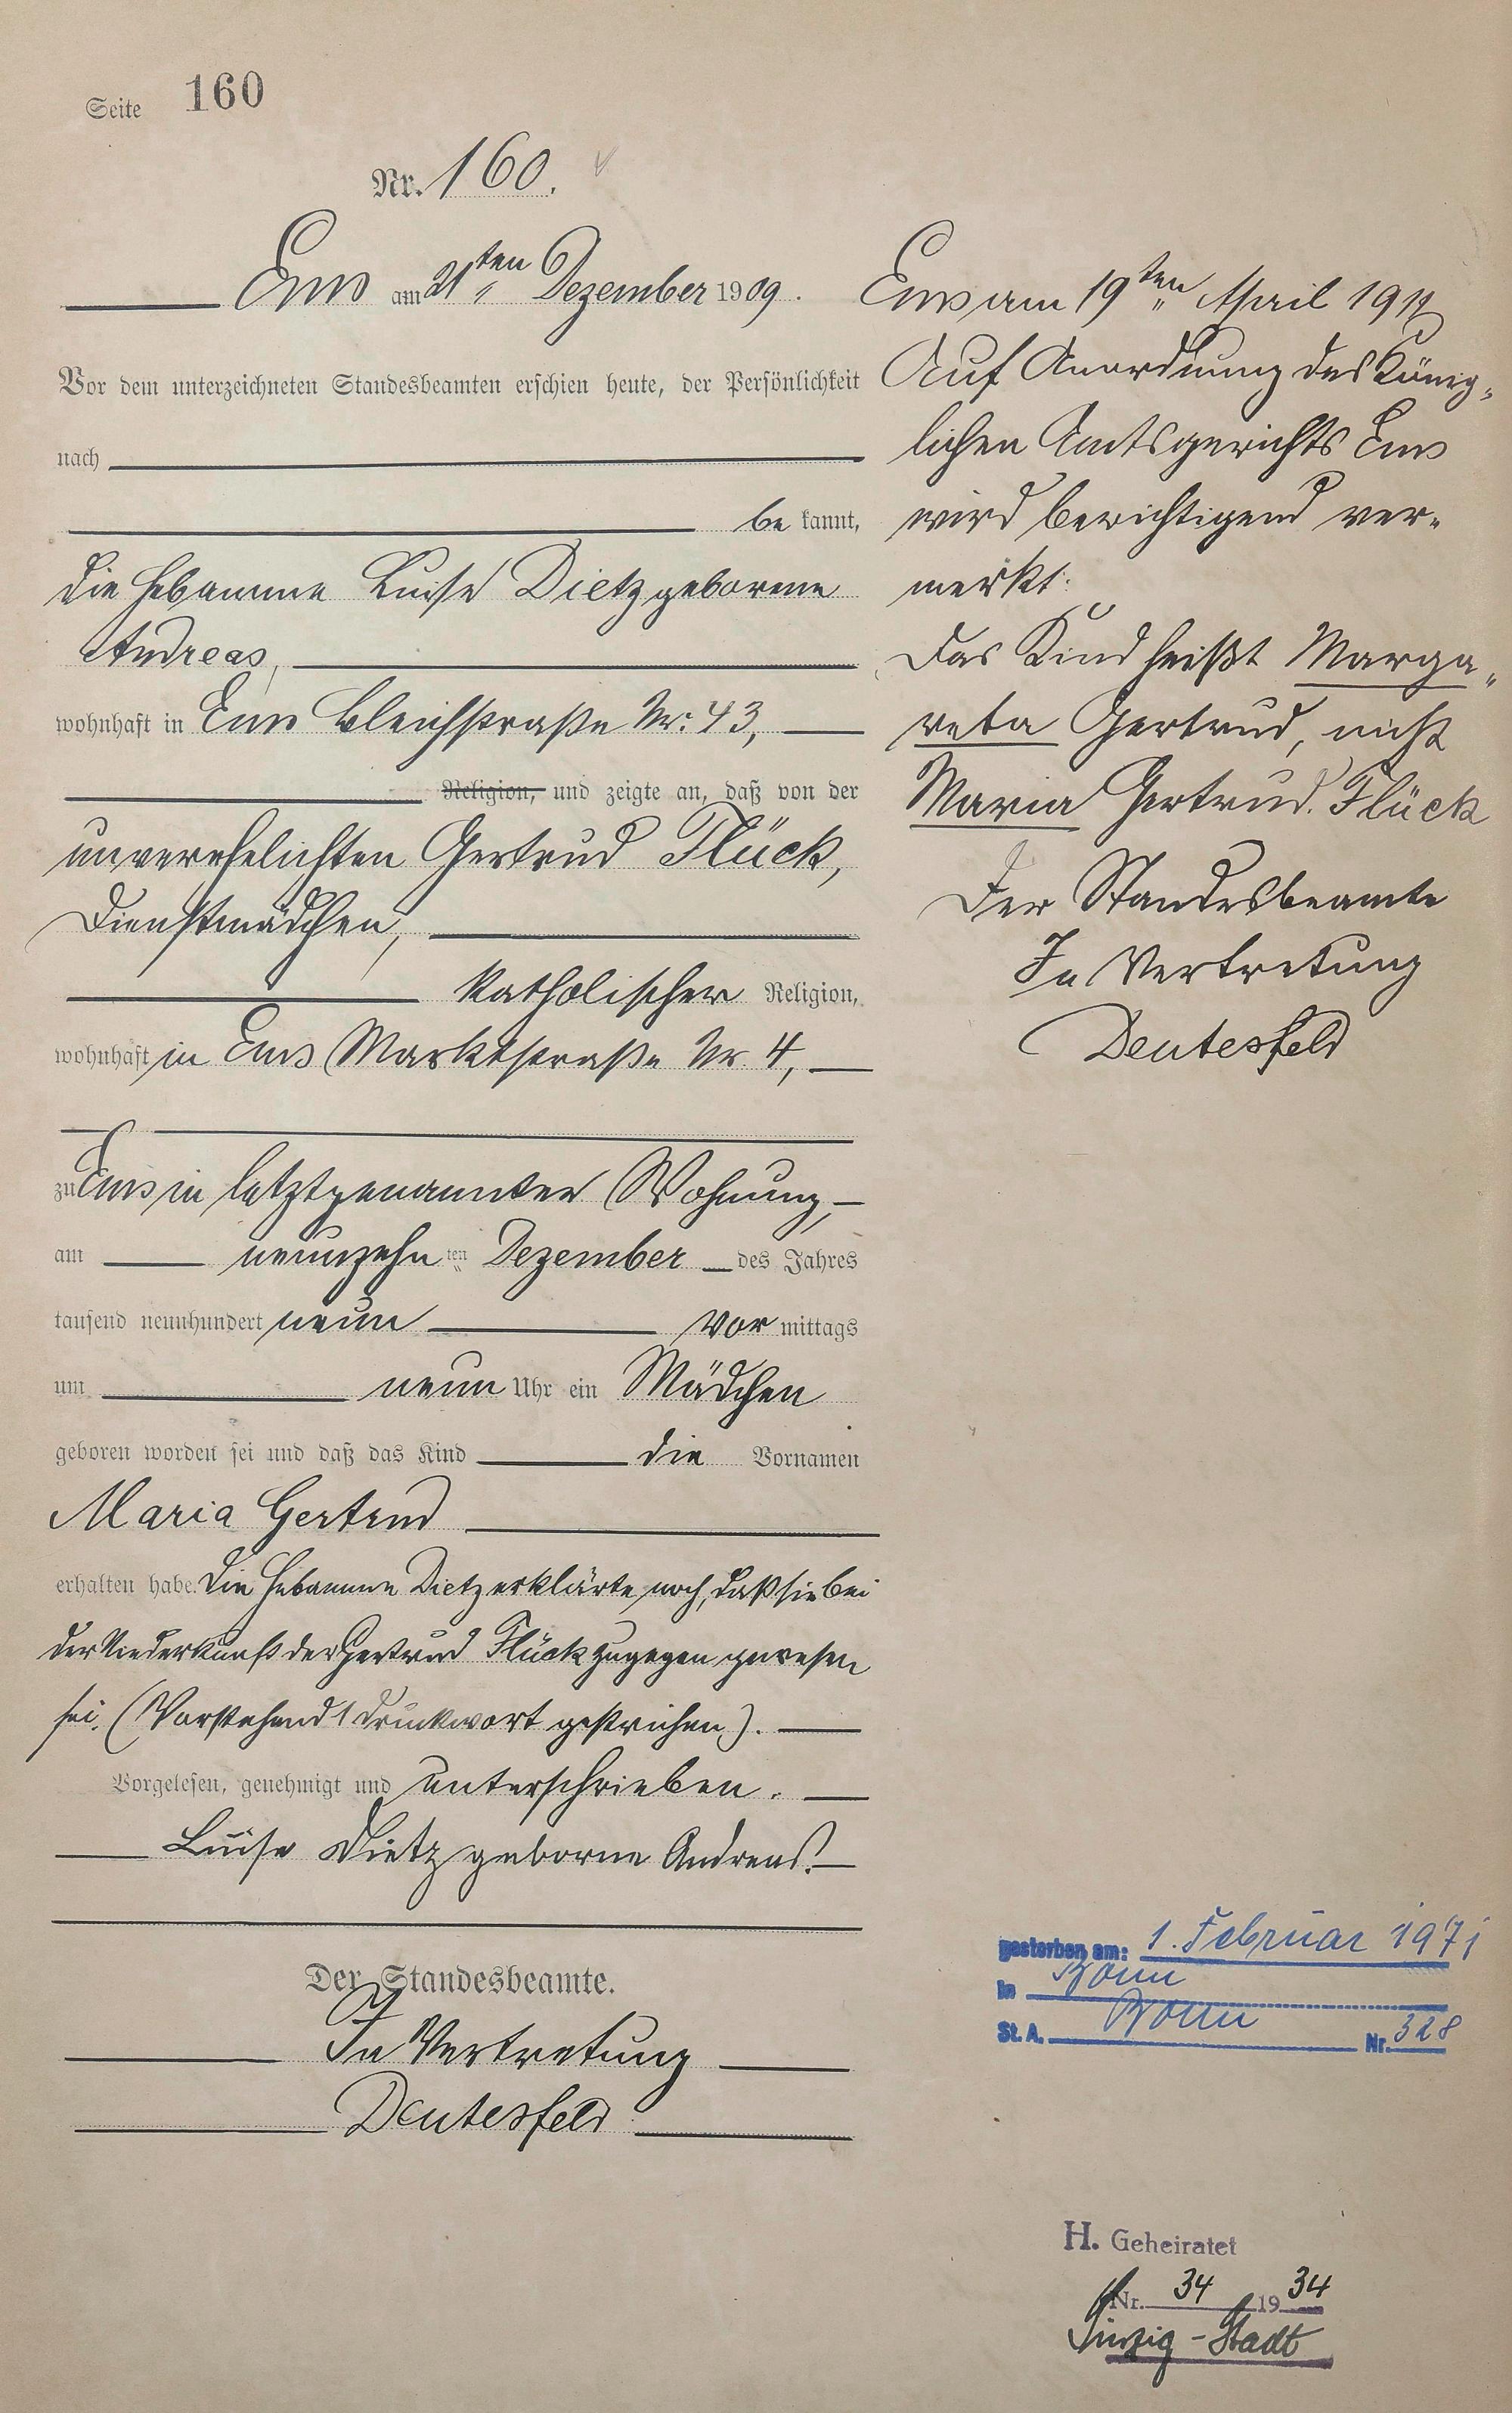 Seite 160
Nr. 160.
Ems am 21ten Dezember 1909.
Vor dem unterzeichneten Standesbeamten erschien heute, der Persönlichkeit
nach
be kannt,
die Hebamme Luise Dietz geborene
Andreas,
wohnhaft in Ems Bleichstraße Nr. 43,
Religion, und zeigte an, daß von der
unverehelichten Gertrud Flück,
Dienstmädchen,
katholischer Religion,
wohnhaft in Ems Marktstraße Nr. 4,
zu Ems in letztgenannter Wohnung,
am neunzehn ten Dezember des Jahres
tausend neunhundert neun vor mittags
um neun Uhr ein Mädchen
geboren worden sei und daß das Kind die Vornamen
Maria Gertrud
erhalten habe. Die Hebamme Dietz erklärte noch, daß sie bei
der Niederkunft der Gertrud Flück zugegen gewesen
sei. (Vorstehend 1 Druckwort gestrichen).
Vorgelesen, genehmigt und unterschrieben.
Luise Dietz geborne Andreas.
Der Standesbeamte.
In Vertretung
Deutesfeld
Ems am 19ten April
Auf Anordnung des König-
lichen Amtsgerichts Ems
wird berichtigend ver-
merkt:
Das Kind heißt Marga-
reta Gertrud, nicht
Maria Gertrud. Flück
Der Standesbeamte
In Vertretung
Deutesfeld
gestorben am: 1. Februar 1971
in Bonn
St. A. Bonn Nr. 328
H. Geheiratet
Nr. 34 1934
Sinzig-Stadt